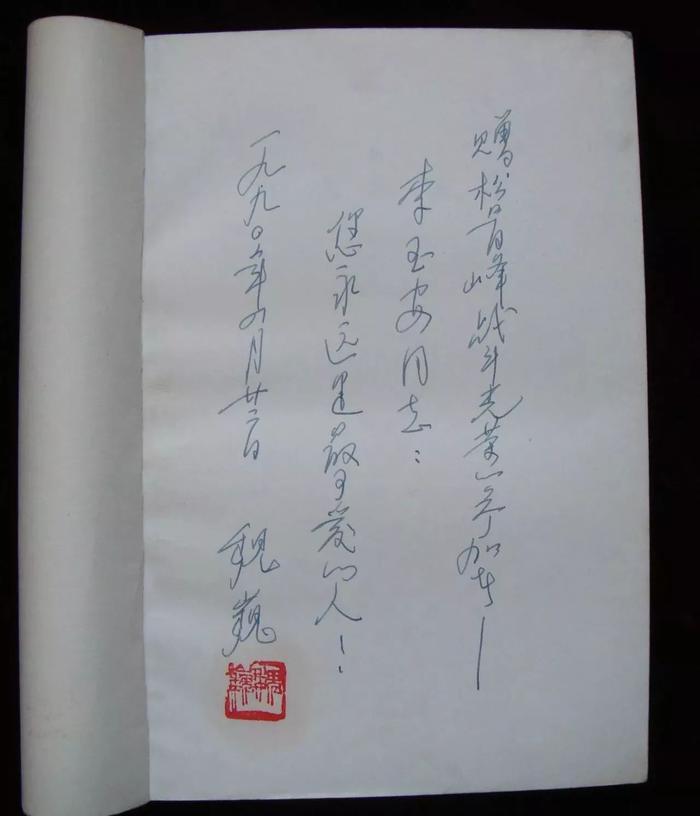 赠松骨峰战斗光荣的参加者—
李玉安同志：
您永远是最可爱的人！
一九九〇年四月廿二日 魏巍